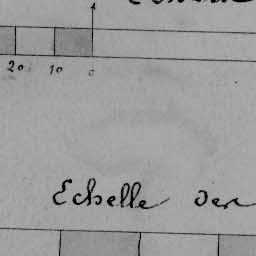 20 10 0
Echelle des